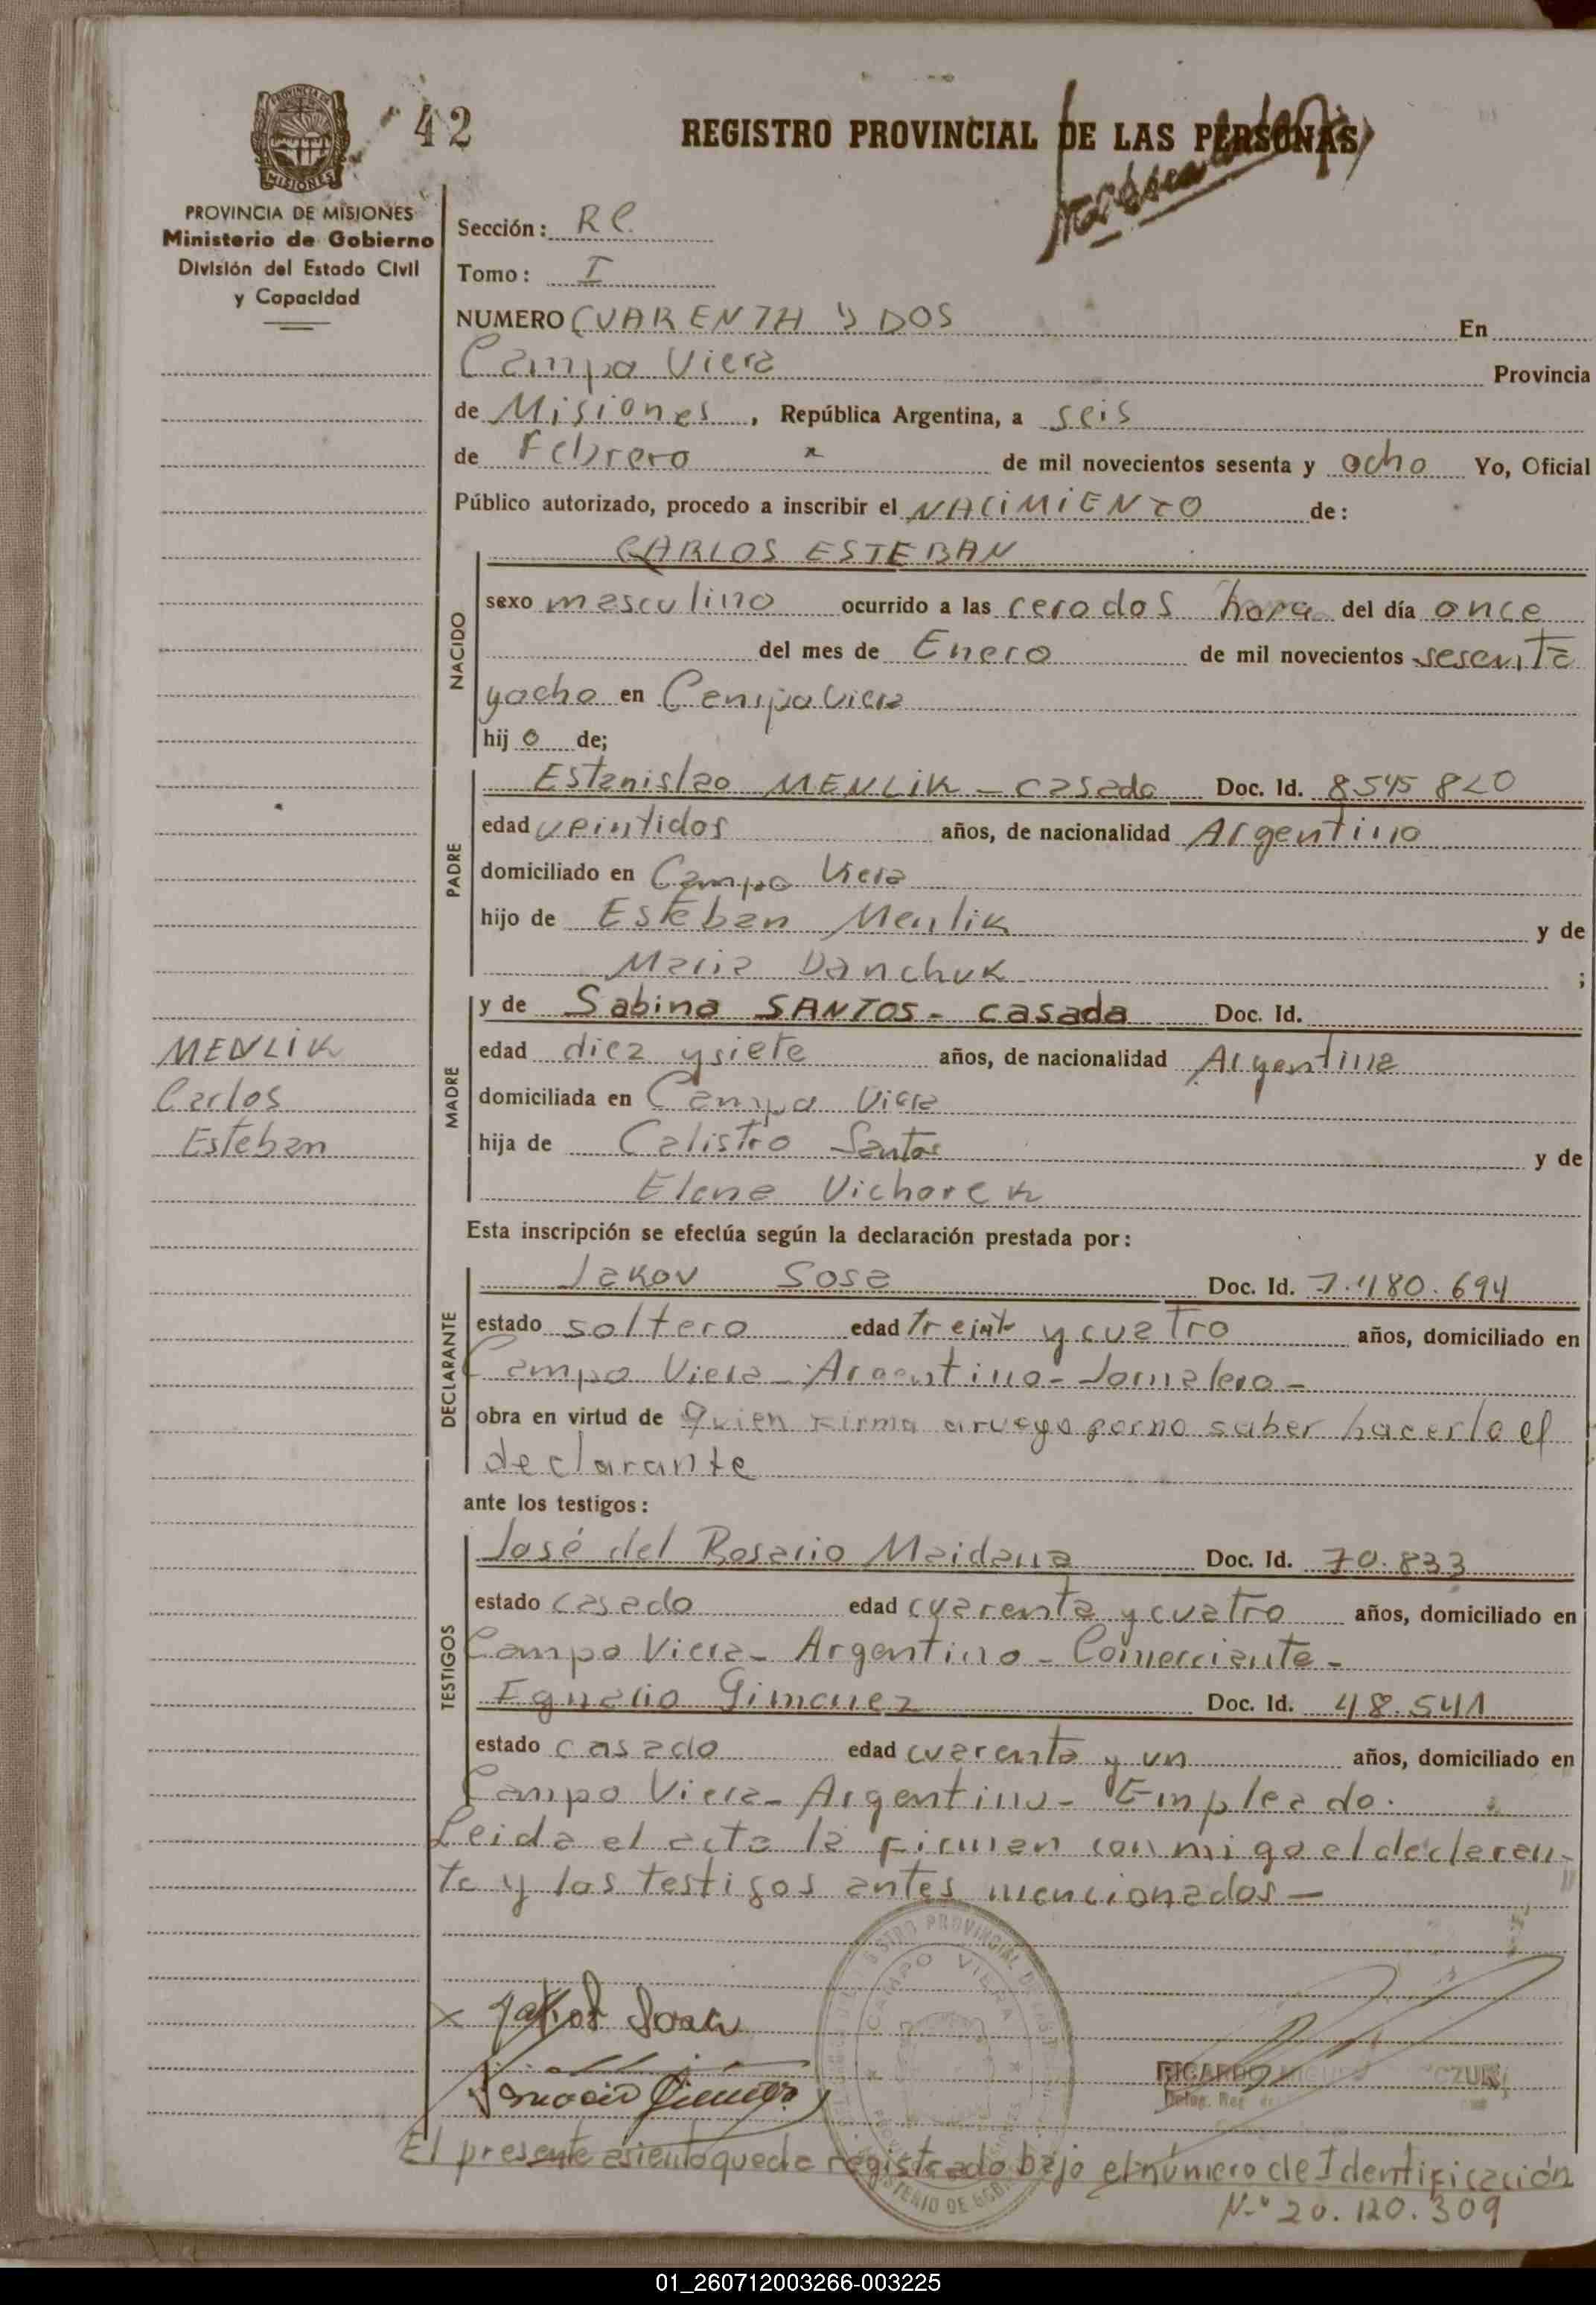 42
REGISTRO PROVINCIAL DE LAS PERSONAS
PROVINCIA DE MISIONES
Ministerio de Gobierno
División del Estado Civil
y Capacidad
Sección: R C.
Tomo: I
NUMERO CUARENTA Y DOS En
Campo Viera Provincia
de Misiones, República Argentina, a seis
de Febrero de mil novecientos sesenta y ocho Yo, Oficial
Público autorizado, procedo a inscribir el NACIMIENTO de:
CARLOS ESTEBAN
NACIDO
sexo masculino ocurrido a las cero dos hora del día once
del mes de Enero de mil novecientos sesenta
y ocho en Campo Viera
hij o de;
PADRE
Estanislao MENLIK - casado Doc. Id. 8545820
edad veintidos años, de nacionalidad Argentino
domiciliado en Campo Viera
hijo de Esteban Menlik y de
Maria Danchuk ;
MADRE
y de Sabina SANTOS - casada Doc. Id.
edad diez y siete años, de nacionalidad Argentina
domiciliada en Campo Viera
hija de Calistro Santos y de
Elena Vichorek
MENLIK
Carlos
Esteban
Esta inscripción se efectúa según la declaración prestada por:
DECLARANTE
Jakov Sosa Doc. Id. 7.480.694
estado soltero edad treinta y cuatro años, domiciliado en
Campo Viera - Argentino - Jornalero -
obra en virtud de Quien firma a ruego por no saber hacerlo el
declarante
ante los testigos:
TESTIGOS
José del Rosario Maidana Doc. Id. 70.833
estado casado edad cuarenta y cuatro años, domiciliado en
Campo Viera - Argentino - Comerciante -
Egnacio Gimenez Doc. Id. 48.541
estado casado edad cuarenta y un años, domiciliado en
Campo Viera - Argentino - Empleado.
Leida el acta la firman conmigo el declaran-
te y los testigos antes mencionados -
CAMPO VIERA
RICARDO
El presente asiento queda registrado bajo el número de Identificación
N-º 20.120.309
01_260712003266-003225